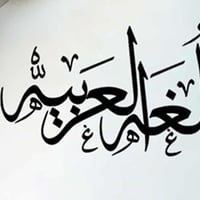 لغة العربية